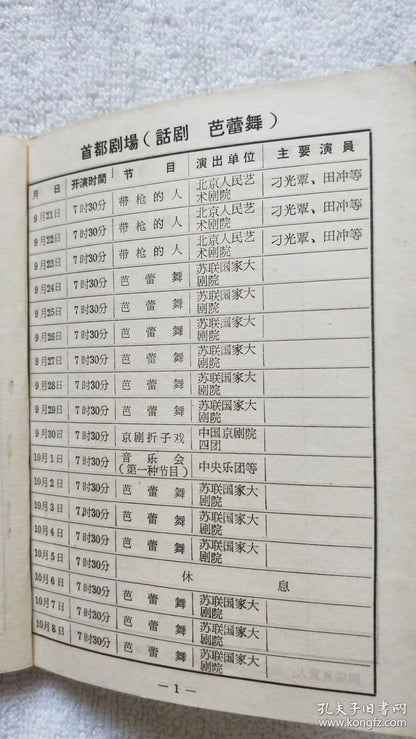 首都剧場(話剧　芭蕾舞)
月　日 开演时間 节　目 演出单位 主要演員
9月21日 7时30分 带枪的人 北京人民艺术剧院 刁光覃、田冲等
9月22日 7时30分 带枪的人 北京人民艺术剧院 刁光覃、田冲等
9月23日 7时30分 带枪的人 北京人民艺术剧院 刁光覃、田冲等
9月24日 7时30分 芭蕾舞 苏联国家大剧院
9月25日 7时30分 芭蕾舞 苏联国家大剧院
9月26日 7时30分 芭蕾舞 苏联国家大剧院
9月27日 7时30分 芭蕾舞 苏联国家大剧院
9月28日 7时30分 芭蕾舞 苏联国家大剧院
9月29日 7时30分 芭蕾舞 苏联国家大剧院
9月30日 7时30分 京剧折子戏 中国京剧院四团
10月1日 7时30分 音乐会(第一种节目) 中央乐团等
10月2日 7时30分 芭蕾舞 苏联国家大剧院
10月3日 7时30分 芭蕾舞 苏联国家大剧院
10月4日 7时30分 芭蕾舞 苏联国家大剧院
10月5日 7时30分 休　息
10月6日 7时30分 芭蕾舞 苏联国家大剧院
10月7日 7时30分 芭蕾舞 苏联国家大剧院
10月8日 7时30分 芭蕾舞 苏联国家大剧院
— 1 —
孔夫子旧书网
www.kongfz.com